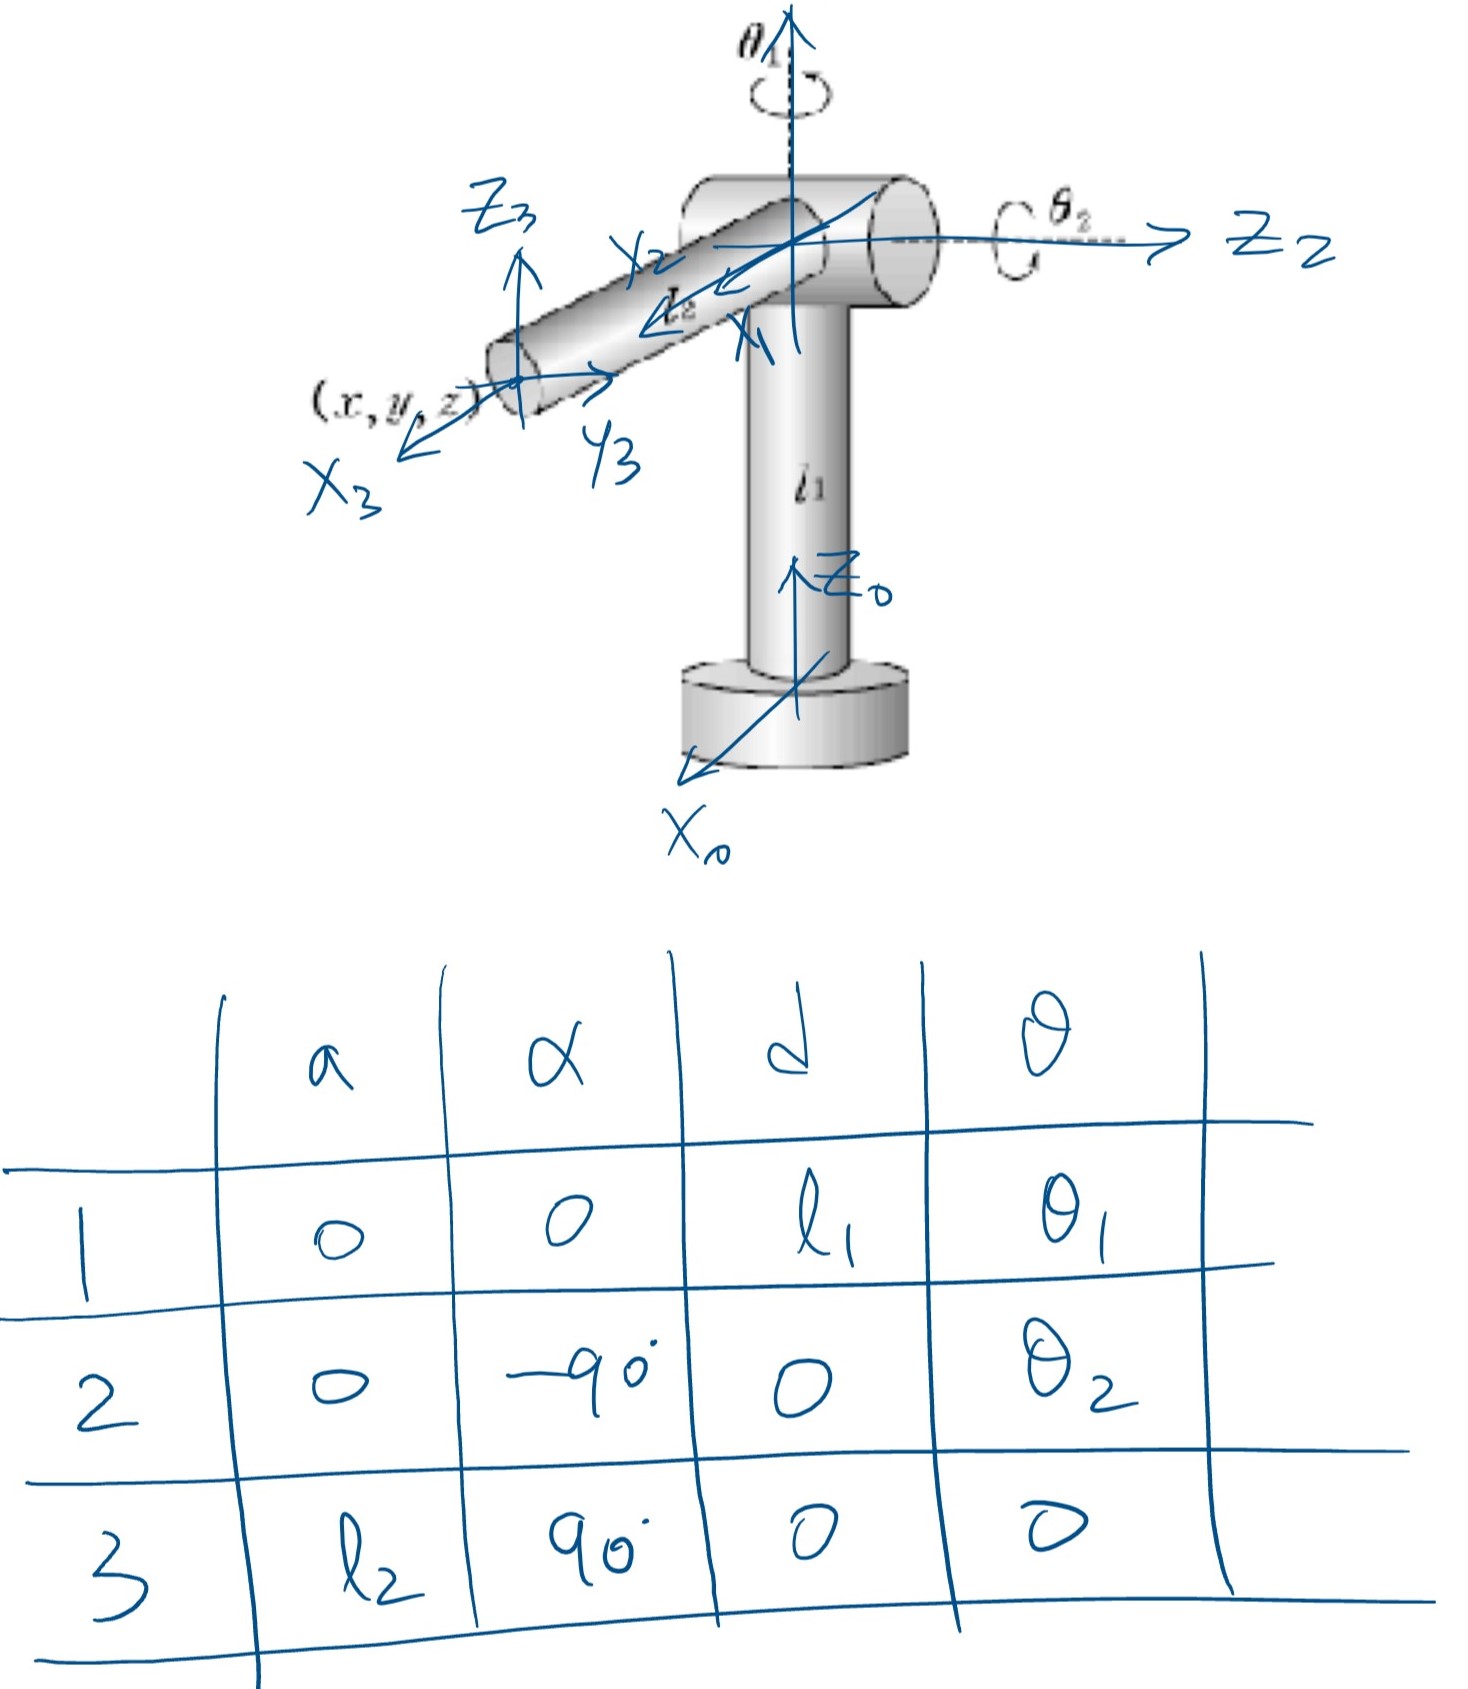 θ₁
Z₃
θ₂
Z₂
X₂
l₂
X₁
(x, y, z)
Y₃
X₃
l₁
Z₀
X₀
a α d θ
1 0 0 l₁ θ₁
2 0 -90° 0 θ₂
3 l₂ 90° 0 0